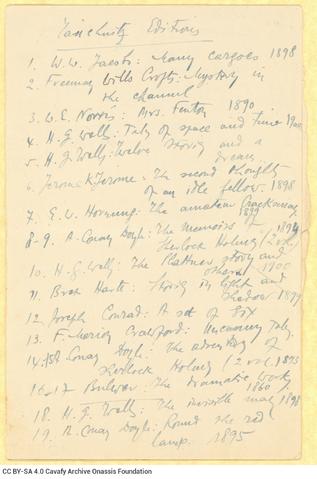 Tauchnitz Editions
1. W. W. Jacobs: Many cargoes 1898
2. Freeman Wills Crofts: Mystery in
the channel
3. W. E. Norris: Mrs. Fenton 1890.
4. H. G. Wells: Tales of space and time 1900
5. H. G. Wells: Twelve stories and a
dream.
6. Jerome K. Jerome: The second thoughts
of an idle fellow. 1898
7. E. W. Hornung: The amateur Cracksman
1899
8-9. A. Conan Doyle: The Memoirs of 1894
Sherlock Holmes (2 vol.
10. H. G. Wells: The Plattner story and
others 1900
11. Bret Harte: Stories in light and
shadow 1899
12. Joseph Conrad: A set of Six
13. F. Marion Crawford: Uncanny Tales.
14-15 A. Conan Doyle: The adventures of
Sherlock Holmes (2 vol. 1893
16-17 Bulwer: The dramatic works
1860
18. H. G. Wells: The invisible man 1898
19. A. Conan Doyle: Round the red
lamp. 1895
CC BY-SA 4.0 Cavafy Archive Onassis Foundation